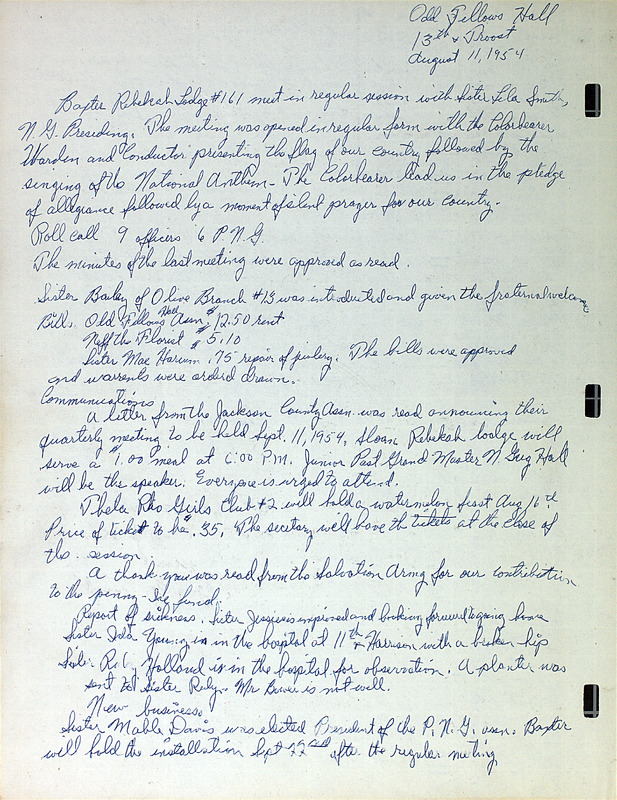 Odd Fellows Hall
13th & Troost
August 11, 1954
Baxter Rebekah Lodge #161 meet in regular session with Sister Lila Smith,
N.G. Presiding. The meeting was opened in regular form with the Colorbearer
Warden and Conductor presenting the flag of our country followed by the
singing of the National Anthem - The Colorbearer lead us in the pledge
of allegiance followed by a moment of silent prayer for our country.
Roll call 9 officers 6 P.N.G.
The minutes of the last meeting were approved as read.
Sister Bailey of Olive Branch #13 was introduced and given the fraternal welcome
Bills. Old Fellows Hall Assn. $12.50 rent
Neff the Florist $5.10
Sister Mae Harum .75 repair of . The bills were approved
and warrents were orderd drawn.
Communications
A letter from the Jackson County Assn. was read announcing their
quarterly meeting to be held Sept. 11, 1954, Sloan Rebekah lodge will
serve a $1.00 meal at 6:00 P.M. Junior Past Grand Master N. Greg Hall
will be the speaker. Everyone is urged to attend.
Theta Rho Girls Club #2 will hold a watermelon feast Aug 16th
Price of ticket to be .35. The secretary will have the tickets at the close of
the session.
A thank you was read from the Salvation Army for our contribution
to the penny-ice fund.
Report of sickness. Sister Jessie is improved and looking forward to going home
Sister Ida Young is in the hospital at 11th & Harrison with a broken hip
Sister Holland is in the hospital for observation. A planter was
sent to Sister Mr is not well.
New business
Sister Mable Davis was elected President of the P.N.G. assn. Baxter
will hold the installation Sept 22nd after the regular meeting